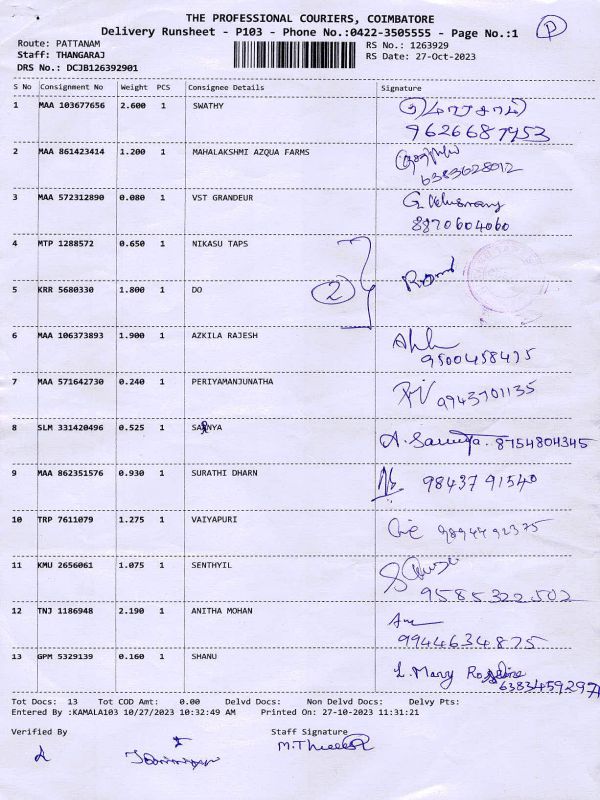 THE PROFESSIONAL COURIERS, COIMBATORE
P
Delivery Runsheet - P103 - Phone No.:0422-3505555 - Page No.:1
Route: PATTANAM RS No.: 1263929
Staff: THANGARAJ RS Date: 27-Oct-2023
DRS No.: DCJB126392901
S No Consignment No Weight PCS Consignee Details Signature
1 MAA 103677656 2.600 1 SWATHY
9626687953
2 MAA 861423414 1.200 1 MAHALAKSHMI AZQUA FARMS
6383628012
3 MAA 572312890 0.080 1 VST GRANDEUR G. Velusmamy
8870604060
4 MTP 1288572 0.650 1 NIKASU TAPS
2
5 KRR 5680330 1.800 1 DO
6 MAA 106373893 1.900 1 AZKILA RAJESH
9500458495
7 MAA 571642730 0.240 1 PERIYAMANJUNATHA 9943701135
8 SLM 331420496 0.525 1 8754804345
9 MAA 862351576 0.930 1 SURATHI DHARN 98437 91540
10 TRP 7611079 1.275 1 VAIYAPURI 9894492375
11 KMU 2656061 1.075 1 SENTHYIL
9585322502
12 TNJ 1186948 2.190 1 ANITHA MOHAN
9944634825
13 GPM 5329139 0.160 1 SHANU L. Mary
6383459297
Tot Docs: 13 Tot COD Amt: 0.00 Delvd Docs: Non Delvd Docs: Delvy Pts:
Entered By :KAMALA103 10/27/2023 10:32:49 AM Printed On: 27-10-2023 11:31:21
Verified By Staff Signature